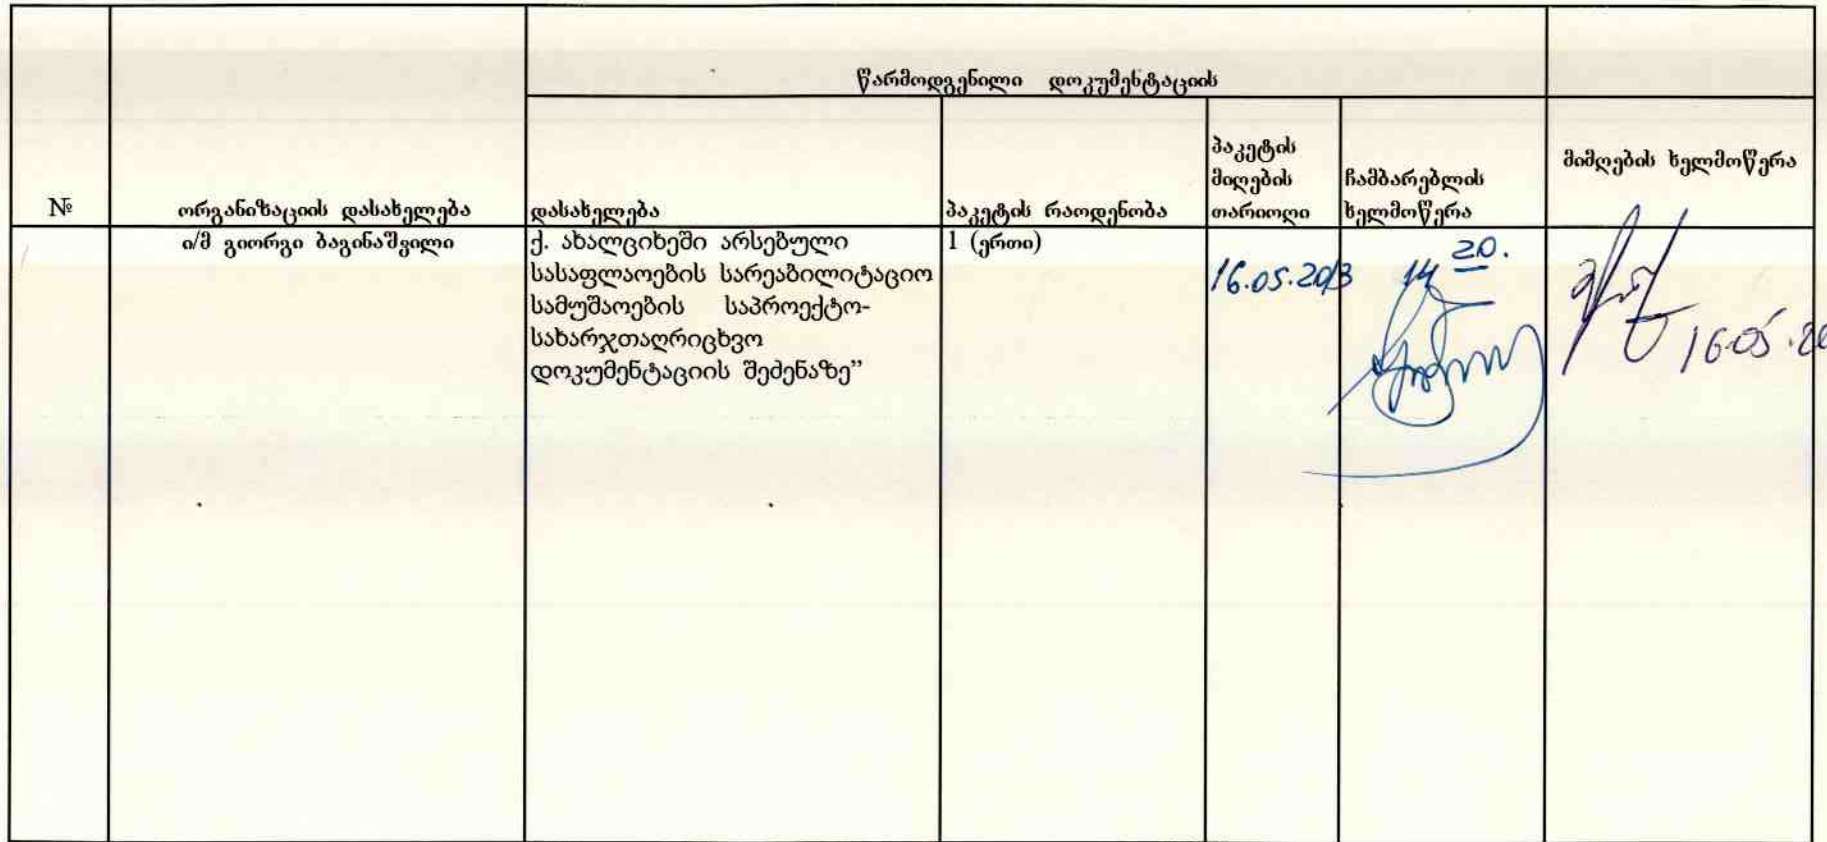 წარმოდგენილი დოკუმენტაციის
№
ორგანიზაციის დასახელება
დასახელება
პაკეტის რაოდენობა
პაკეტის
მიღების
თარიოღი
ჩამბარებლის
ხელმოწერა
მიმღების ხელმოწერა
ი/მ გიორგი ბაგინაშვილი
ქ. ახალციხეში არსებული
სასაფლაოების სარეაბილიტაციო
სამუშაოების საპროექტო-
სახარჯთაღრიცხვო
დოკუმენტაციის შეძენაზე”
1 (ერთი)
16.05.2013
14 20.
16.05.20